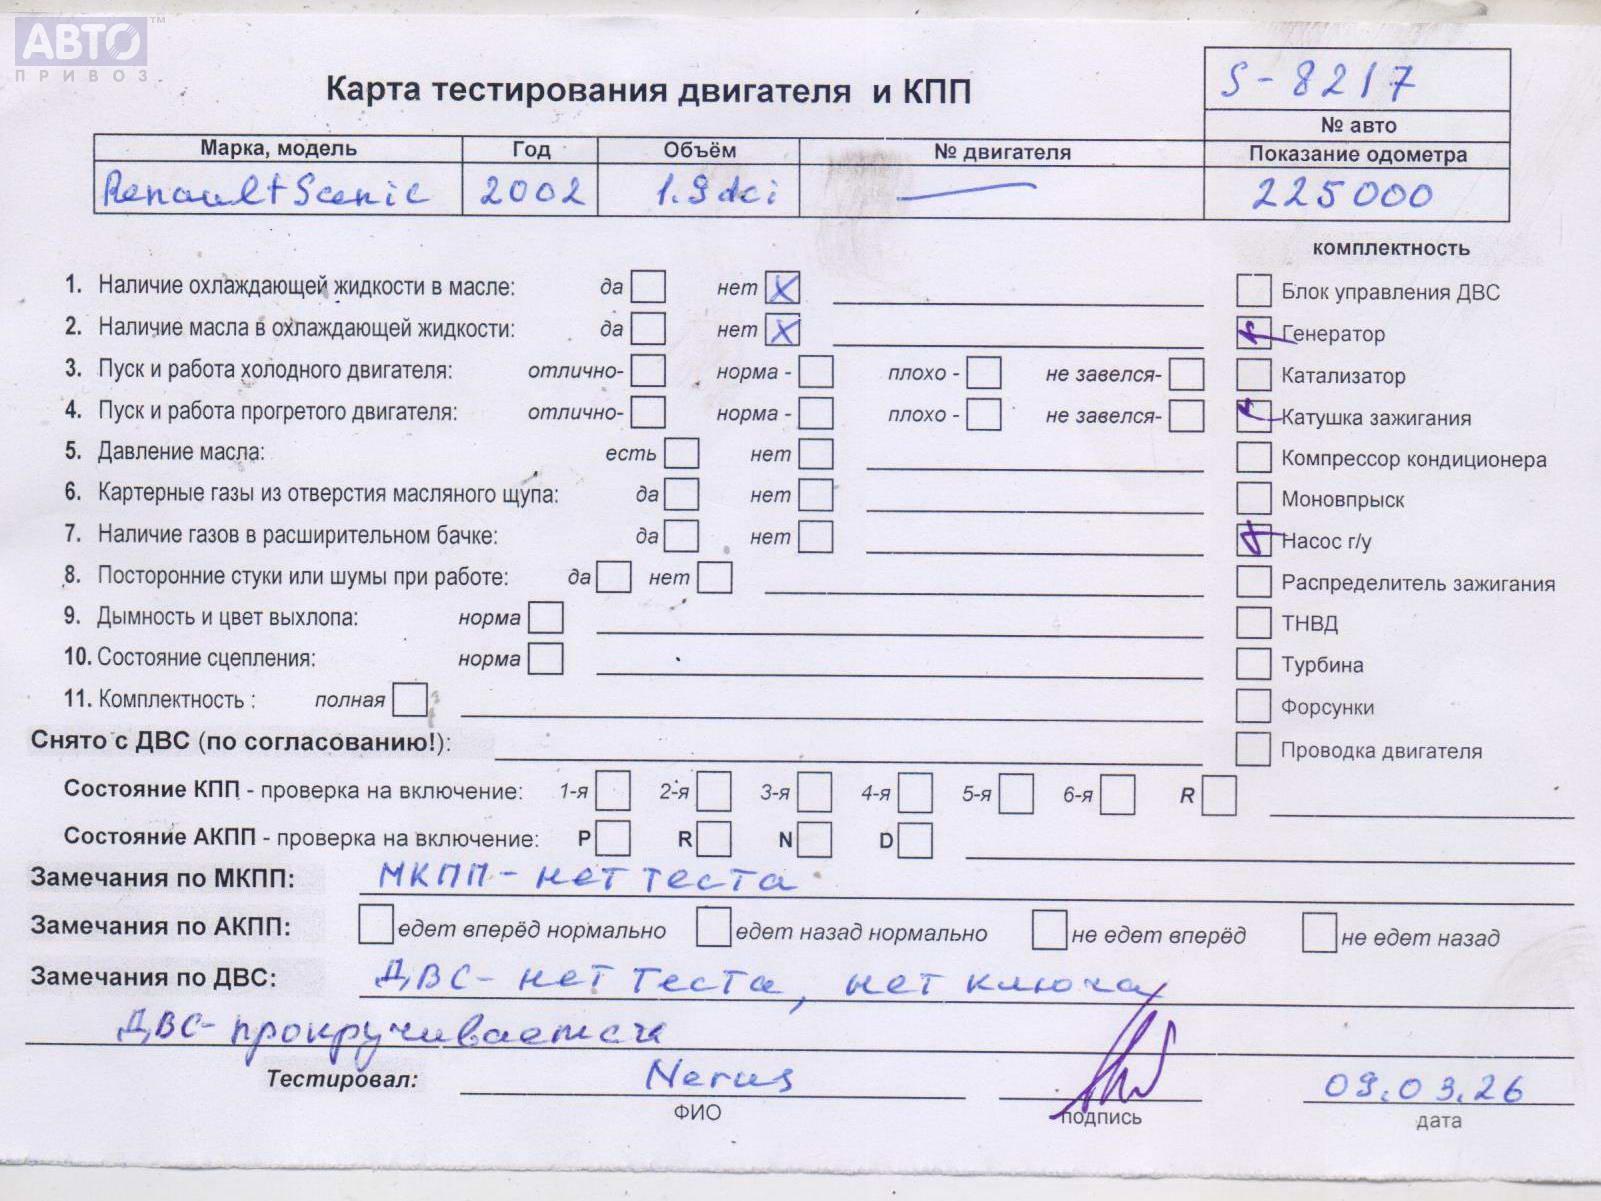 АВТО ТМ
ПРИВОЗ
Карта тестирования двигателя и КПП
S-8217
№ авто
Марка, модель Год Объём № двигателя Показание одометра
Renault Scenic 2002 1.9 dci — 225000
комплектность
1. Наличие охлаждающей жидкости в масле: да нет X
Блок управления ДВС
2. Наличие масла в охлаждающей жидкости: да нет X
Генератор
3. Пуск и работа холодного двигателя: отлично- норма - плохо - не завелся-
Катализатор
4. Пуск и работа прогретого двигателя: отлично- норма - плохо - не завелся-
Катушка зажигания
5. Давление масла: есть нет
Компрессор кондиционера
6. Картерные газы из отверстия масляного щупа: да нет
Моновпрыск
7. Наличие газов в расширительном бачке: да нет
Насос г/у
8. Посторонние стуки или шумы при работе: да нет
Распределитель зажигания
9. Дымность и цвет выхлопа: норма
ТНВД
10. Состояние сцепления: норма
Турбина
11. Комплектность : полная
Форсунки
Снято с ДВС (по согласованию!):
Проводка двигателя
Состояние КПП - проверка на включение: 1-я 2-я 3-я 4-я 5-я 6-я R
Состояние АКПП - проверка на включение: P R N D
Замечания по МКПП: МКПП - нет теста
Замечания по АКПП: едет вперёд нормально едет назад нормально не едет вперёд не едет назад
Замечания по ДВС: ДВС - нет теста, нет ключа
ДВС- прокручивается
Тестировал: Nerus 09.03.26
ФИО подпись дата